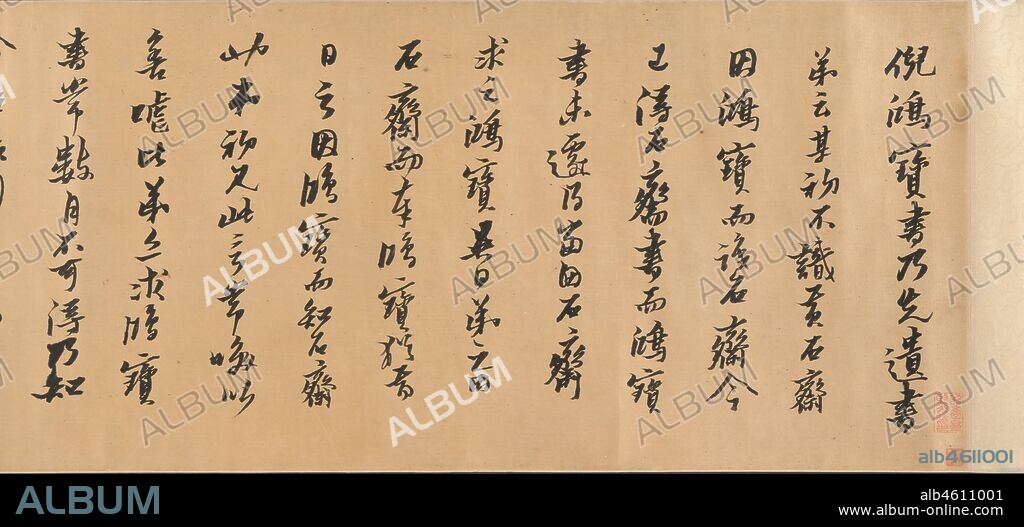 倪鴻寶書乃先遺書
弟云其初不識黃石齋
因鴻寶而識石齋今
已得石齋書而鴻寶
書未還乃當因石齋
求之鴻寶異日弟之因
石齋而奉鴻寶猶昔
日之因鴻寶而知石齋
此
初兄此言
善
此弟亦求鴻寶
書常數月不可得乃知
ALBUM
alb4611001
ALBUM
alb4611001
www.album-online.com